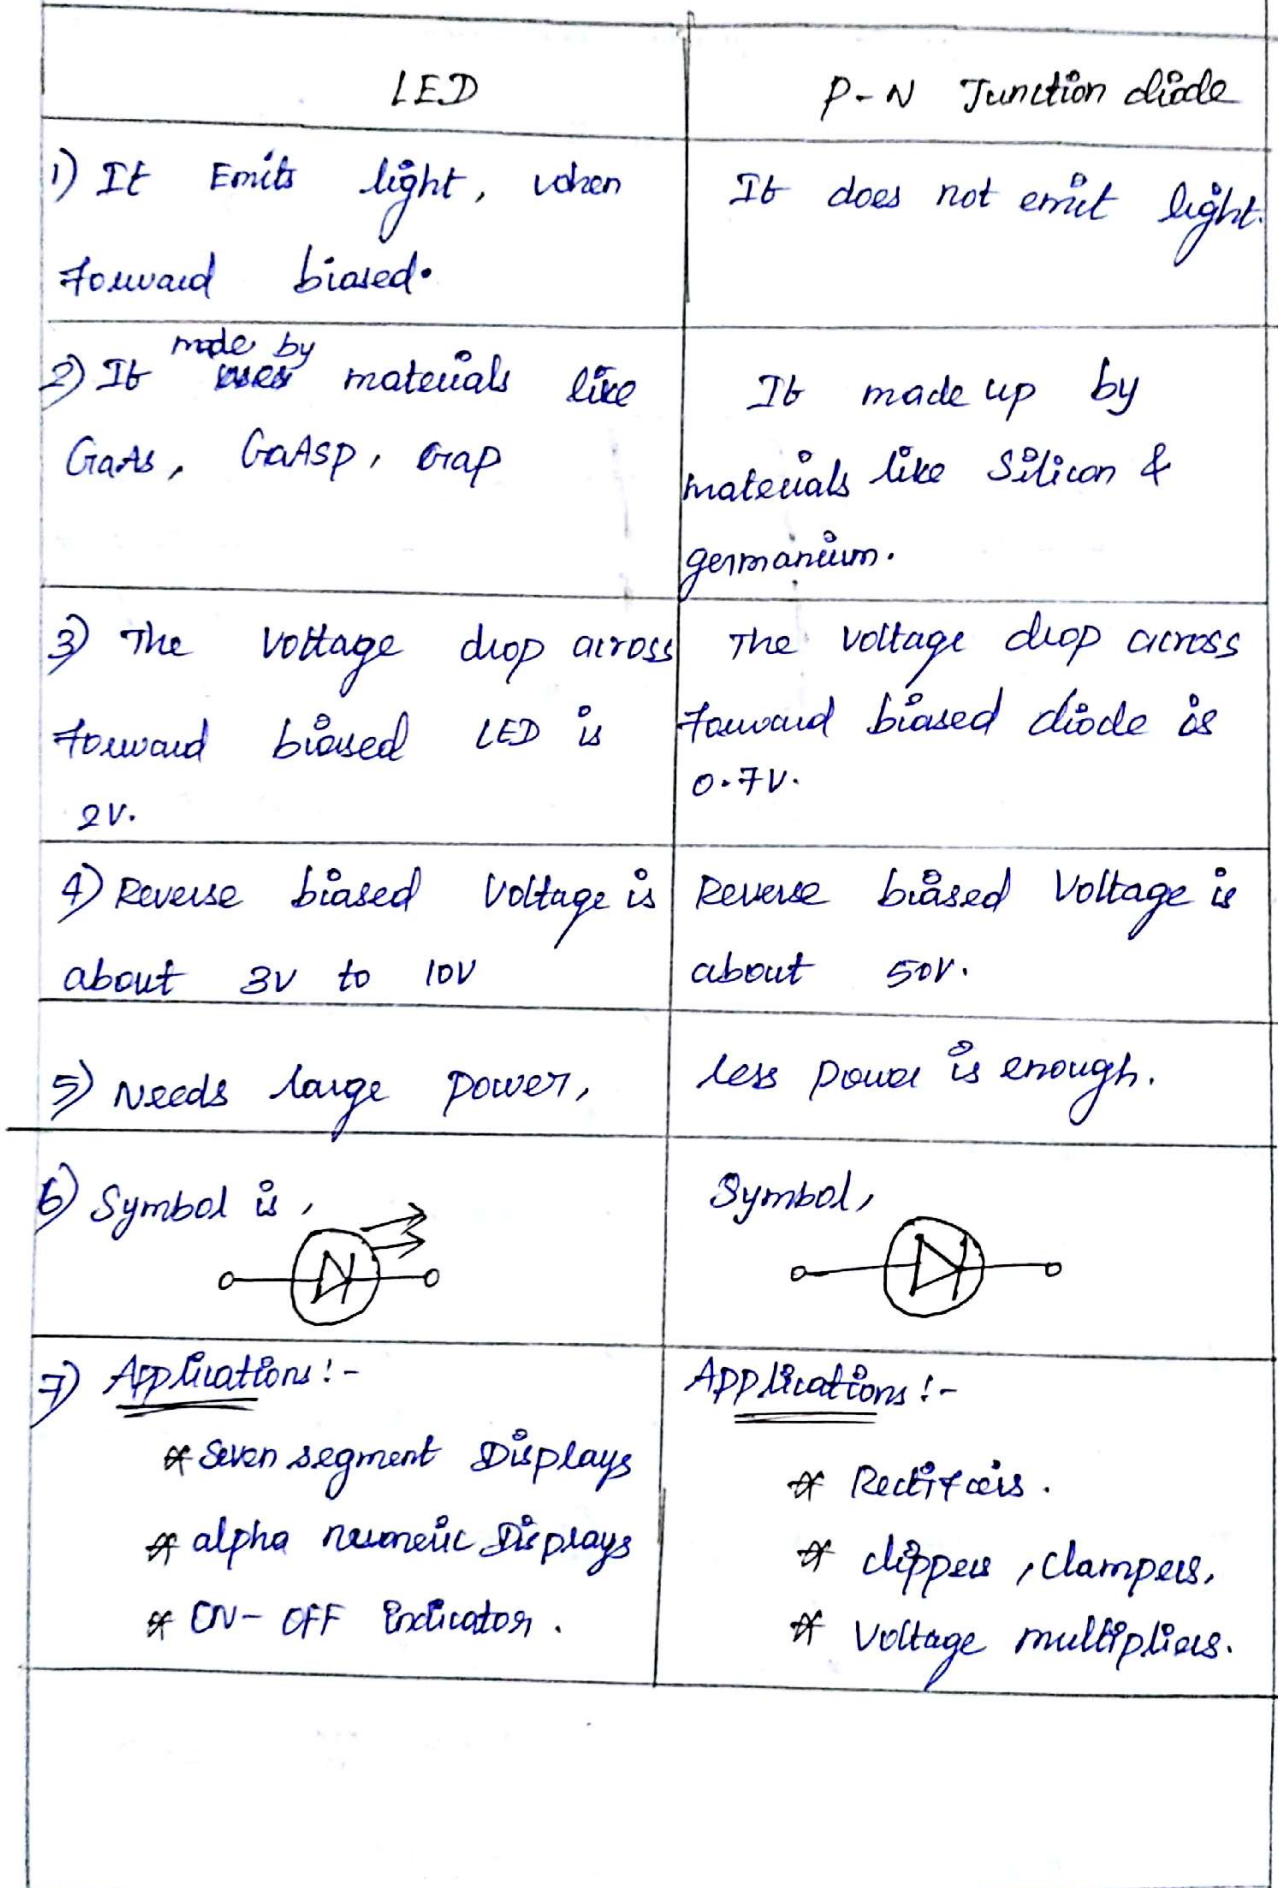 LED
P-N Junction diode
1) It Emits light, when
forward biased.
It does not emit light.
made by
2) It materials like
GaAs, GaAsp, Gap
It made up by
materials like Silicon &
germanium.
3) The Voltage drop across
forward biased LED is
2V.
The voltage drop across
forward biased diode is
0.7V.
4) Reverse biased Voltage is
about 3V to 10V
Reverse biased Voltage is
about 50V.
5) Needs large power,
less power is enough.
6) Symbol is,
Symbol,
7) Applications:-
* Seven segment Displays
* alpha numeric Displays
* ON-OFF indicator.
Applications:-
* Rectifiers.
* clippers, Clampers,
* Voltage multipliers.